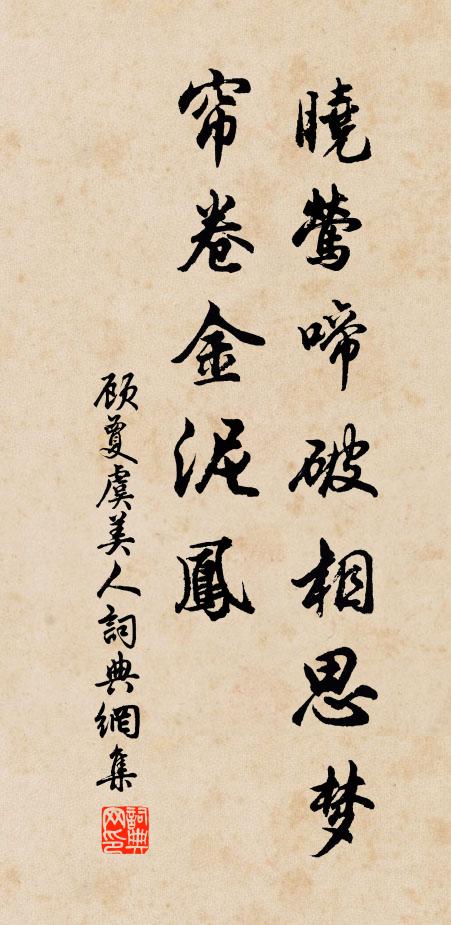 曉鶯啼破相思梦
帘卷金泥鳳
顾夐虞美人詞典網集
詞典网印